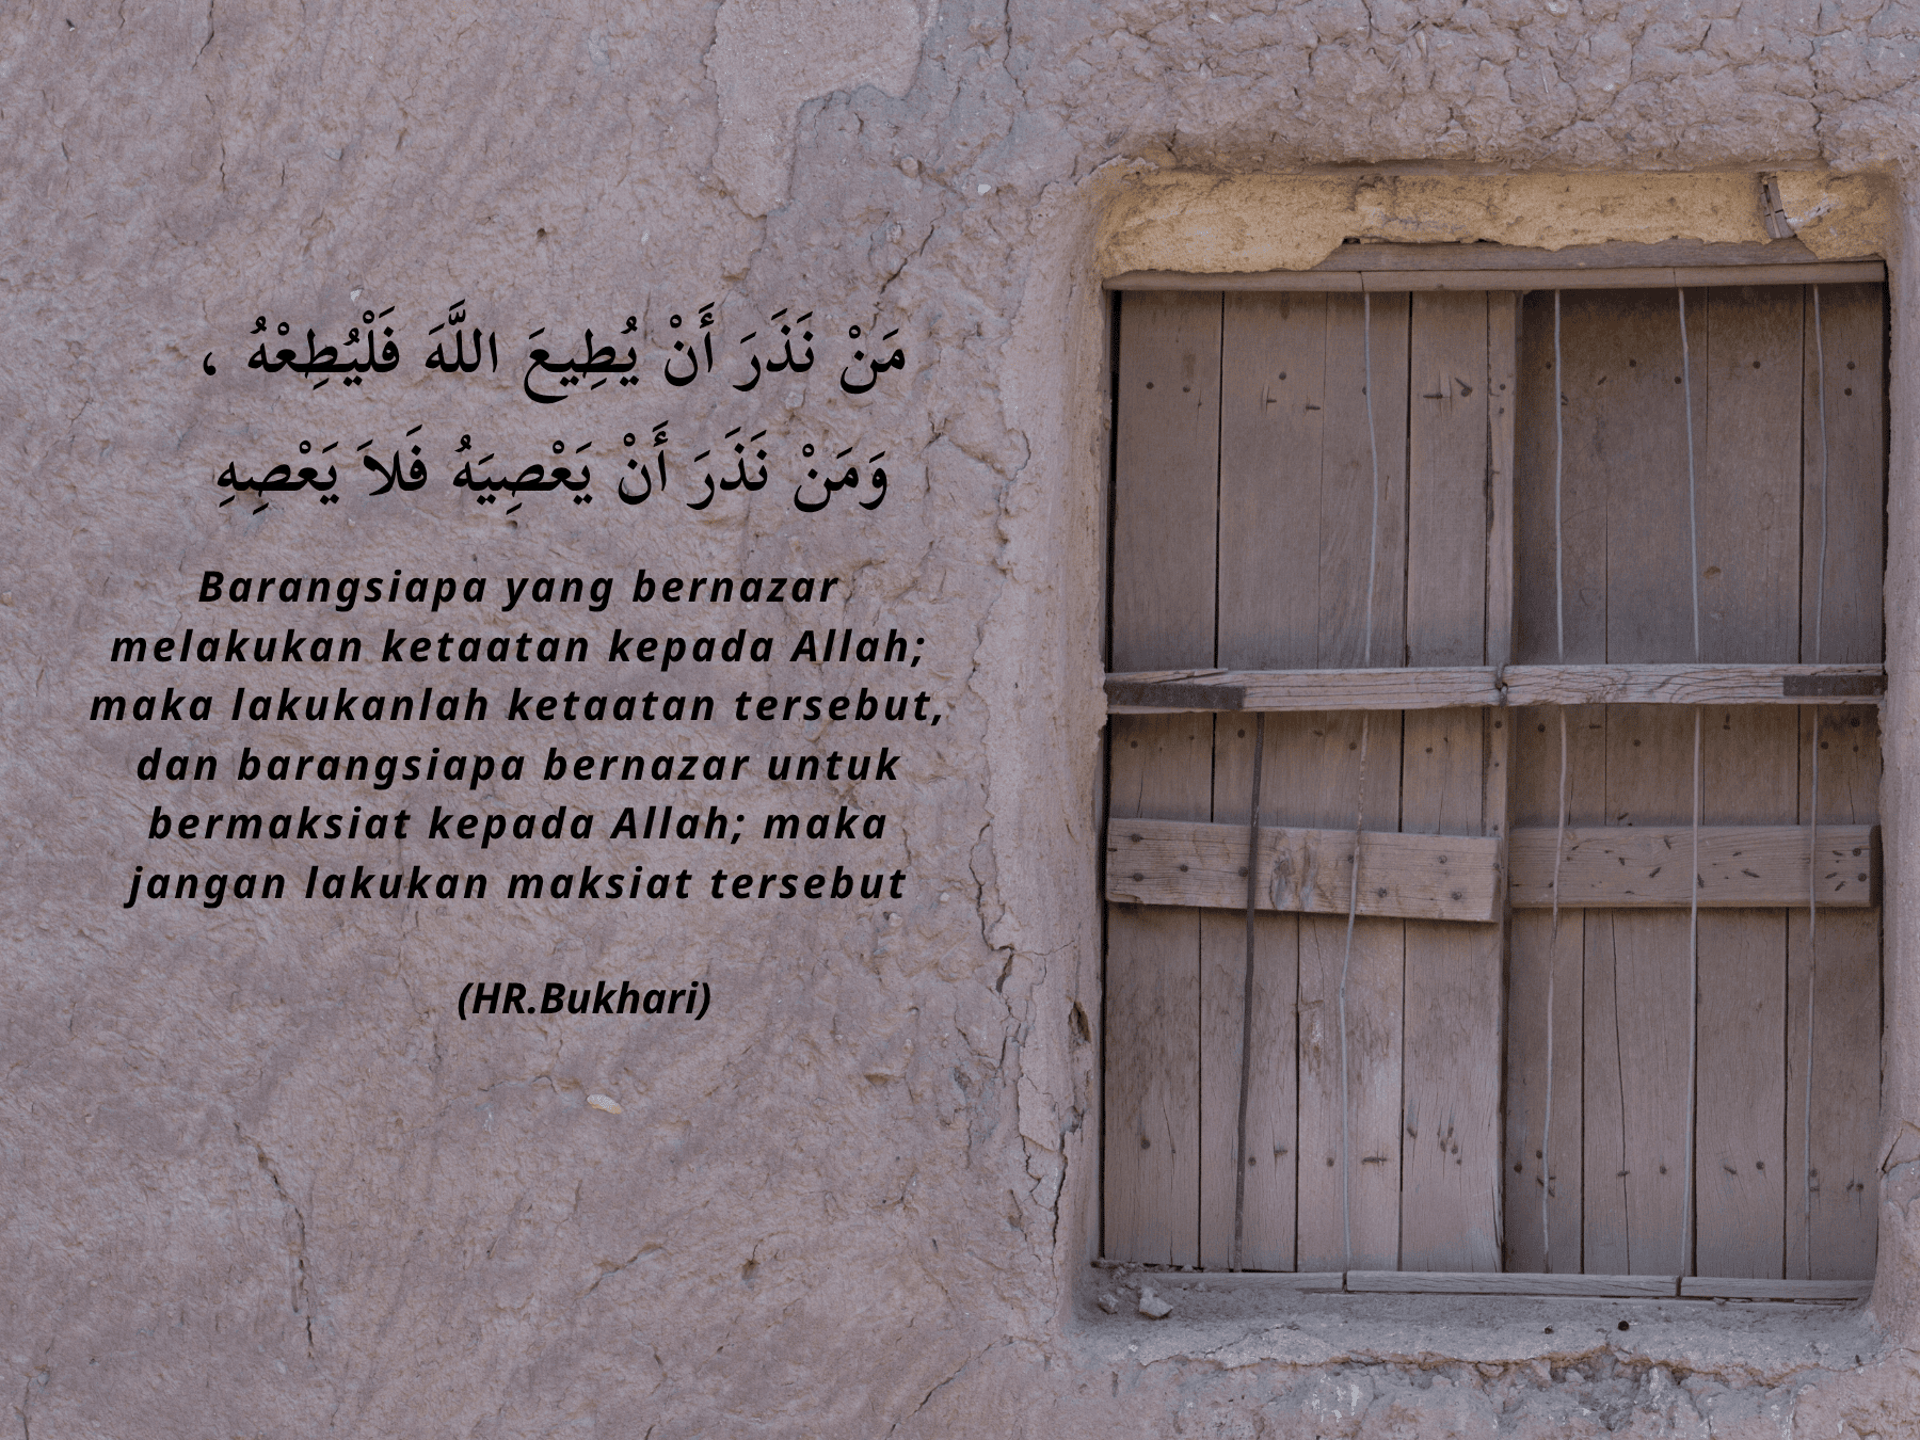 مَنْ نَذَرَ أَنْ يُطِيعَ اللَّهَ فَلْيُطِعْهُ ،
وَمَنْ نَذَرَ أَنْ يَعْصِيَهُ فَلاَ يَعْصِهِ
Barangsiapa yang bernazar
melakukan ketaatan kepada Allah;
maka lakukanlah ketaatan tersebut,
dan barangsiapa bernazar untuk
bermaksiat kepada Allah; maka
jangan lakukan maksiat tersebut
(HR.Bukhari)